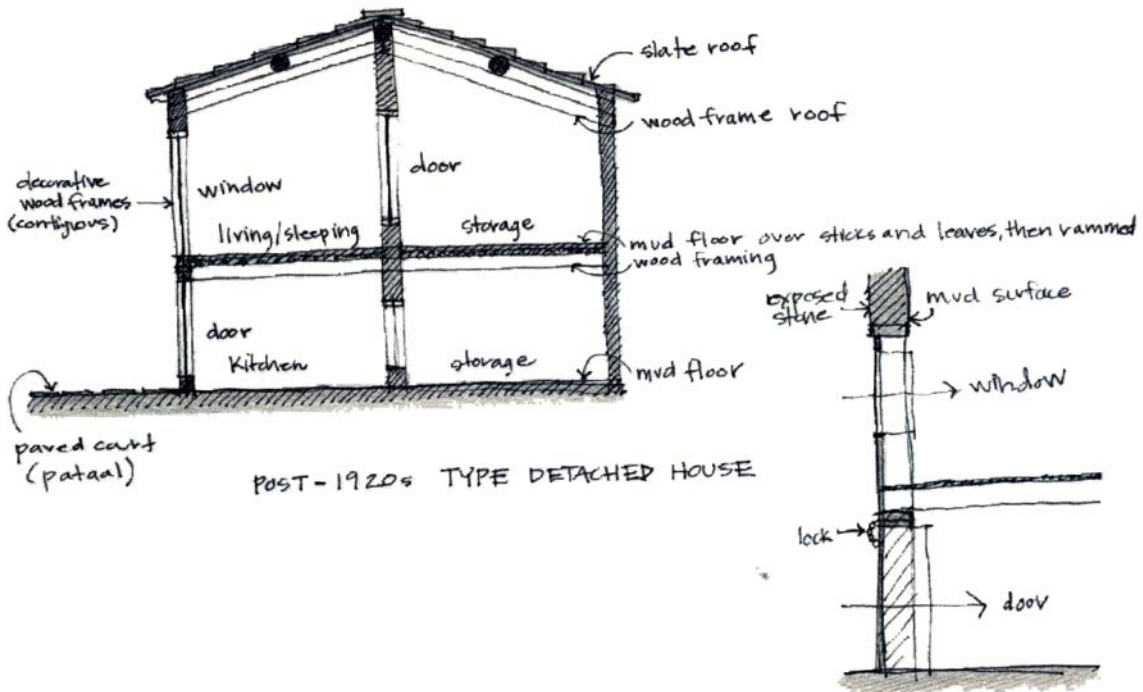 slate roof
wood frame roof
decorative
wood frames
(contiguous)
window
door
living/sleeping
storage
mud floor over sticks and leaves, then rammed
wood framing
door
Kitchen
storage
mud floor
paved court
(pataal)
POST-1920s TYPE DETACHED HOUSE
exposed
stone
mud surface
window
lock
door